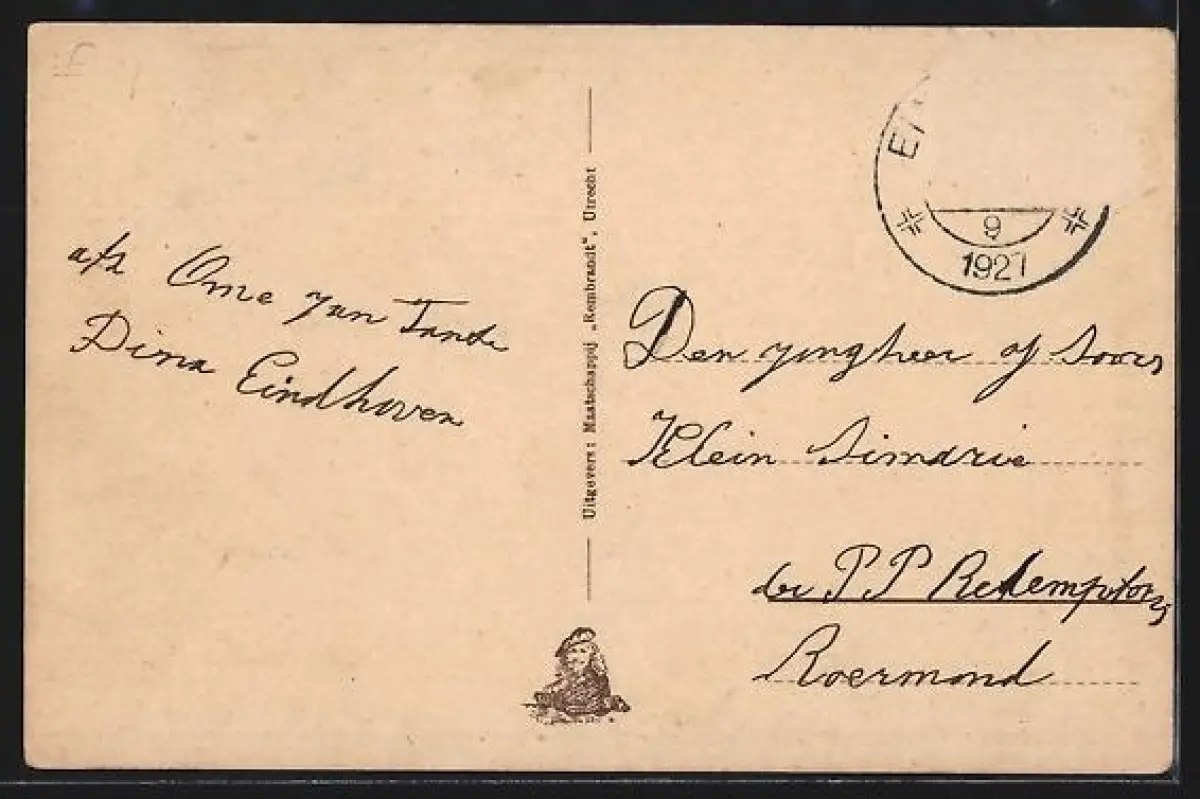 afz Ome Jan Tante
Dina Eindhoven
Uitgevers: Maatschappij „Rembrandt“, Utrecht
EI
9
1927
Den jongheer
Klein
der P P Redemptoris
Roermond